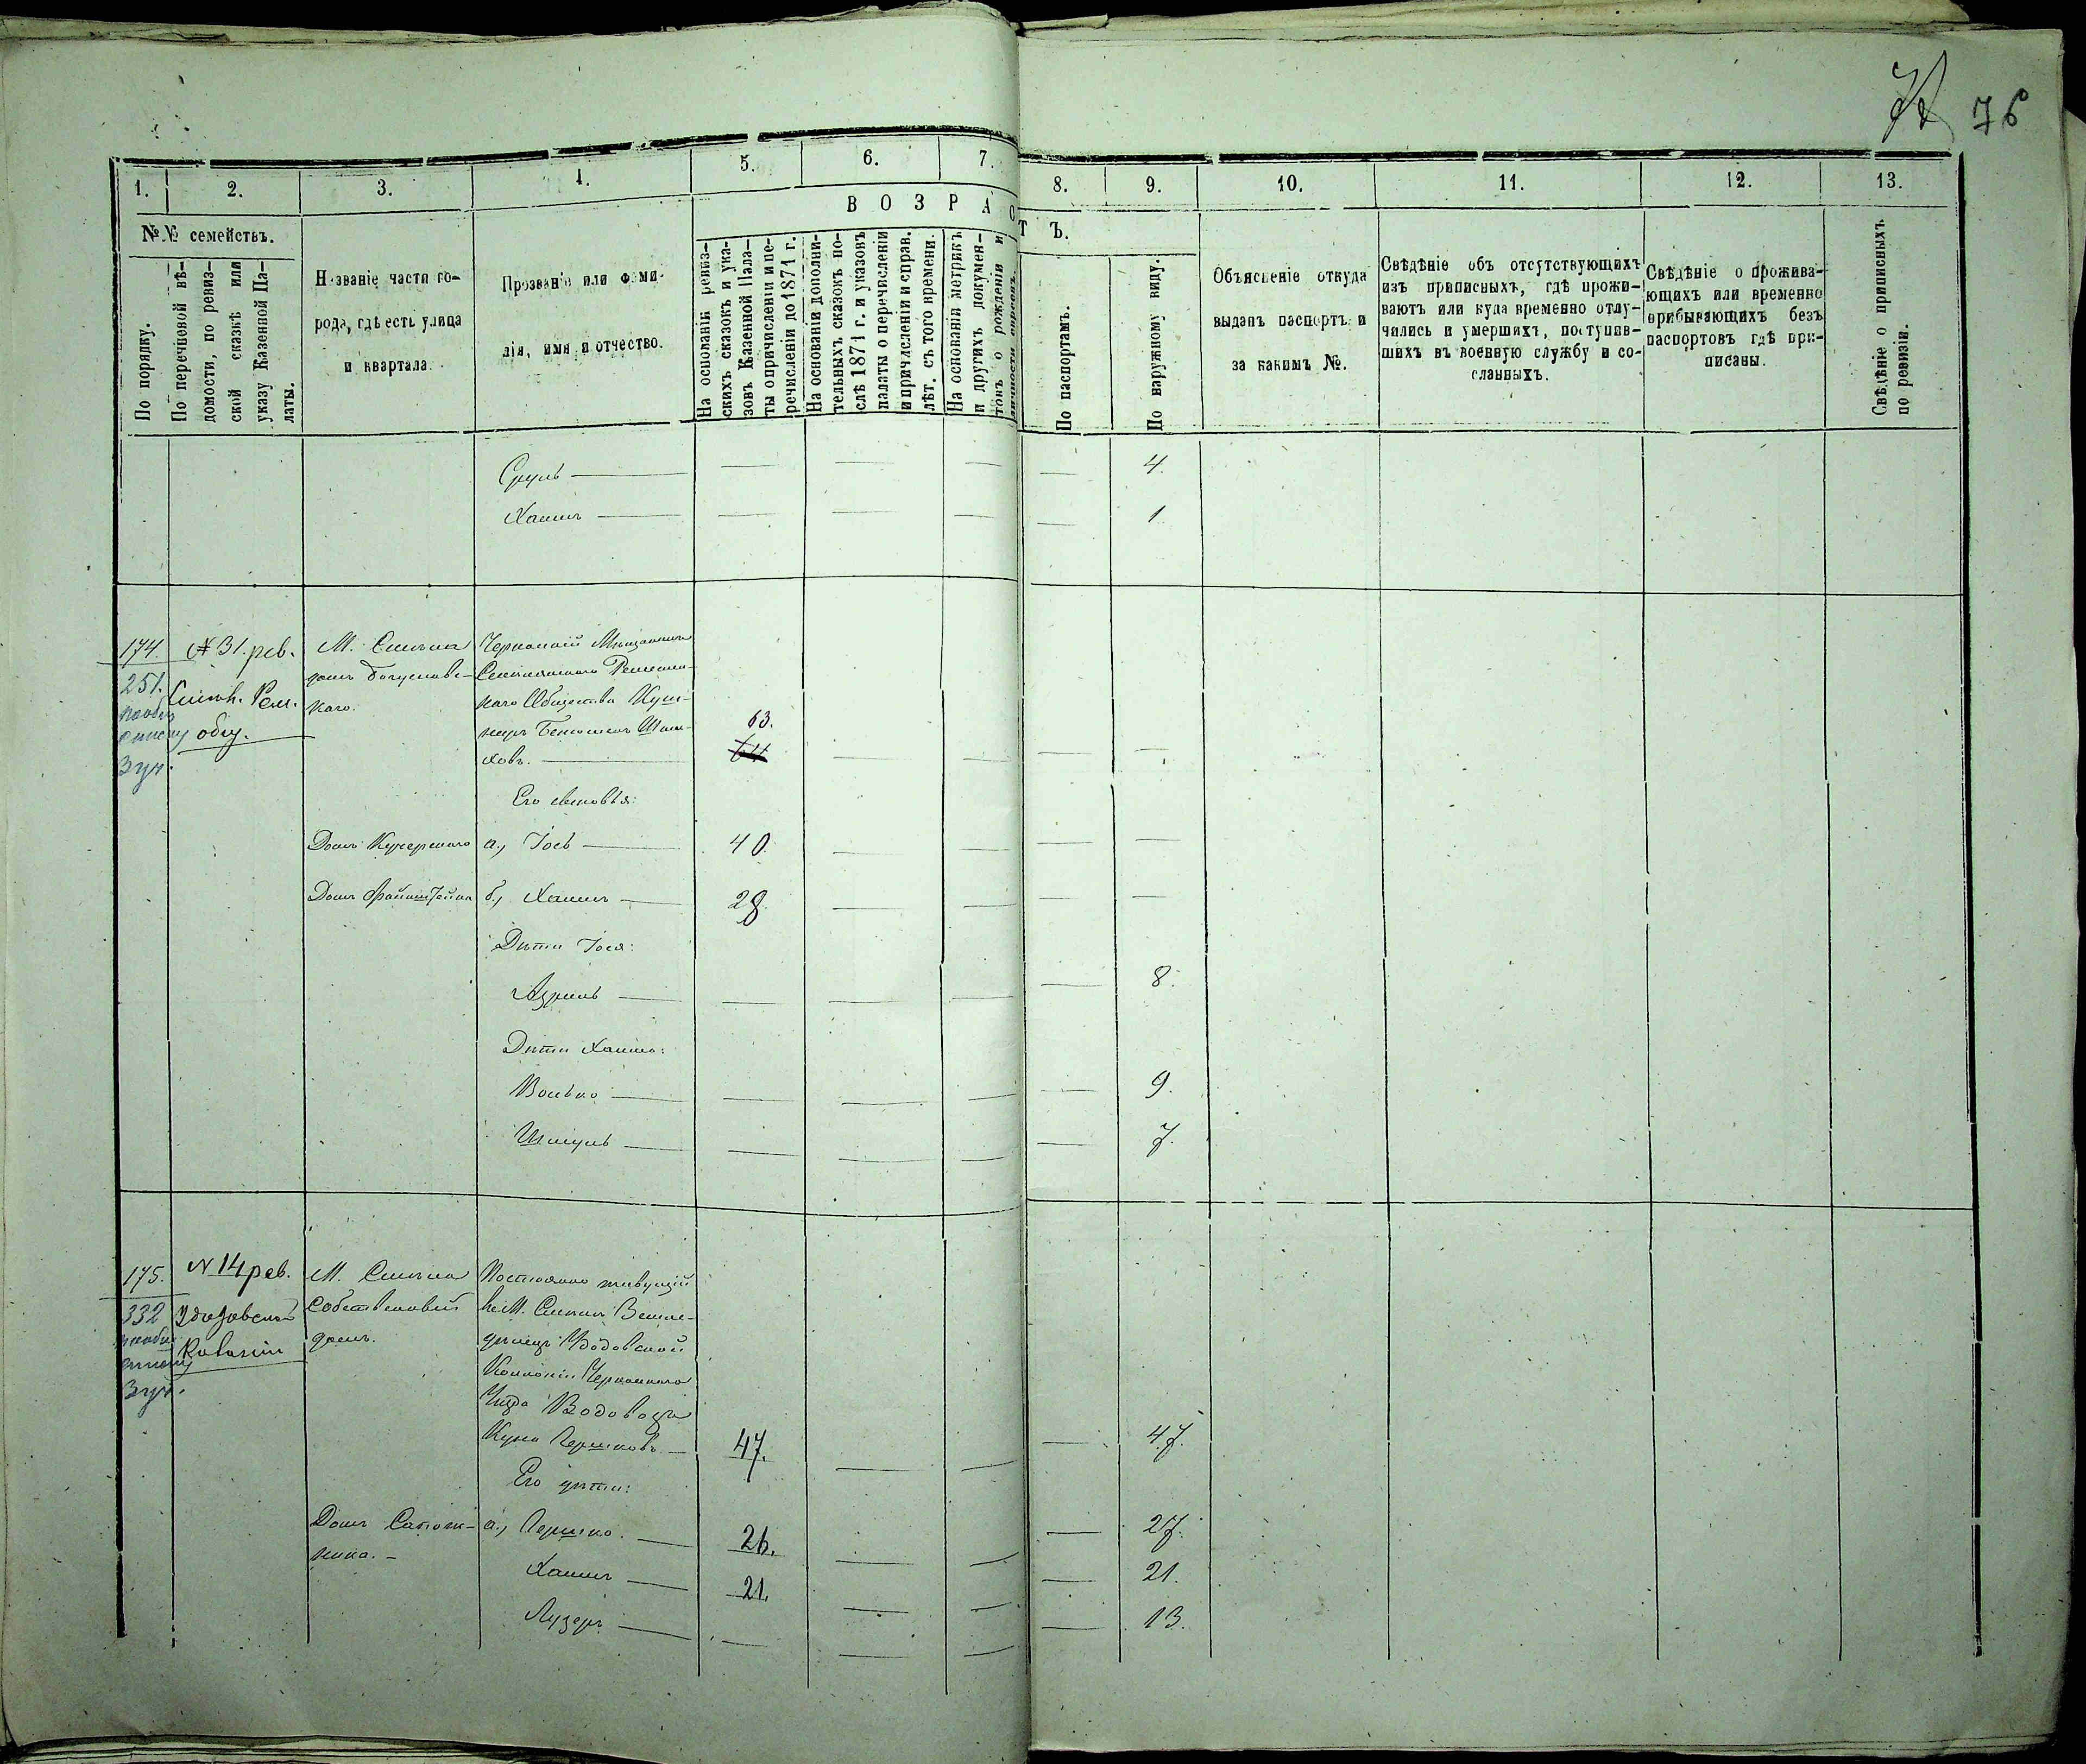 76
1. 2. 3. 4. 5. 6. 7. 8. 9. 10. 11. 12. 13.
№№ семействъ.
По порядку.
По перечневой вѣ-
домости, по ревиз-
ской сказкѣ или
указу Казенной Па-
латы.
Названіе части го-
рода, гдѣ есть улица
и квартала.
Прозваніе или фами-
лія, имя и отчество.
ВОЗРАСТЪ.
На основаніи ревиз-
скихъ сказокъ и ука-
зовъ Казенной Пала-
ты о причисленіи и пе-
речисленіи до 1871 г.
На основаніи дополни-
тельныхъ сказокъ по-
слѣ 1871 г. и указовъ
палаты о перечисленіи
и причисленіи и справ.
лѣт. съ того времени.
На основаніи метрикъ
и другихъ докумен-
товъ о рожденіи и
По паспортамъ.
По наружному виду.
Объясненіе откуда
выданъ паспортъ и
за какимъ №.
Свѣдѣніе объ отсутствующихъ
изъ приписныхъ, гдѣ прожи-
ваютъ или куда временно отлу-
чились и умершихъ, поступив-
шихъ въ военную службу и со-
сланныхъ.
Свѣдѣніе о прожива-
ющихъ или временно
прибывающихъ безъ
паспортовъ гдѣ при-
писаны.
Свѣдѣніе о приписныхъ
по ревизіи.
Сруль 4.
Хаимъ 1
174.
251.
3 уч.
№ 31. рев.
Смѣл. Рем.
общ.
М. Смѣла
домъ Богуславс-
каго.
Черкаскій Мѣщанинъ
Смѣлянскаго Ремеслен-
наго Общества Куш-
ниръ Бенюменъ Шмы-
ховъ. 63. 64
Его сыновья:
Домъ Кучерскаго а., Іось 40
Домъ Файнштейна б., Хаимъ 28
Дѣти Іося:
Азриль 8.
Дѣти Хаима:
Волько 9.
Шмуль 7.
175.
332
3 уч.
N 14 рев.
Колоніи
М. Смѣла
Собственный
домъ.
Постоянно живущій
въ М. Смѣлѣ Земле-
дѣлецъ
Колоніи Черкаскаго
Уѣзда Водовозъ
Куна Гершковъ 47. 47.
Его дѣти:
Домъ Сапож-
ника. – а., Гершко 26. 27.
Хаимъ 21. 21.
Лузеръ 13.